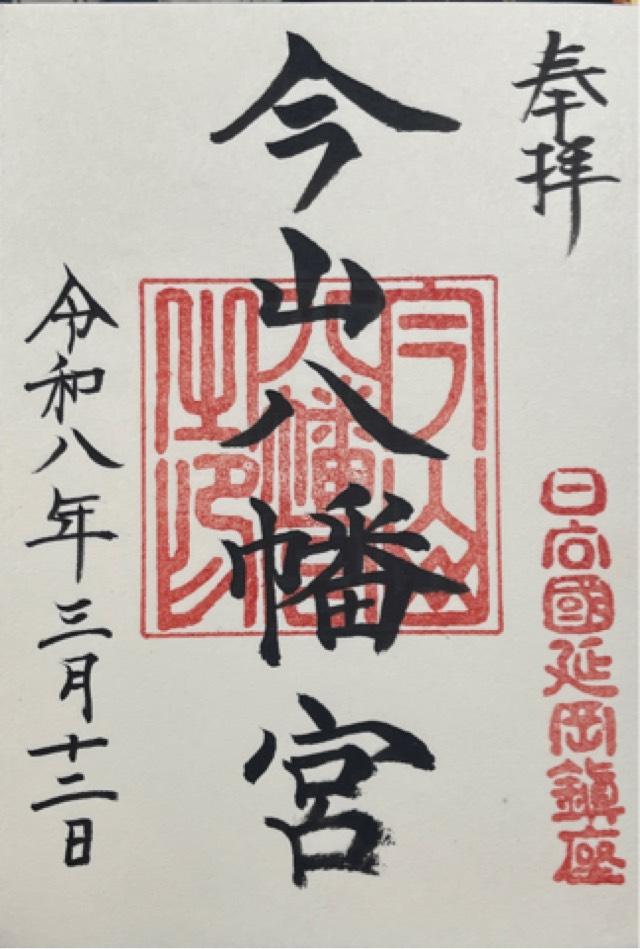 奉拝
日向國延岡鎮座
今山八幡宮
今山八幡宮之印
令和八年三月十二日